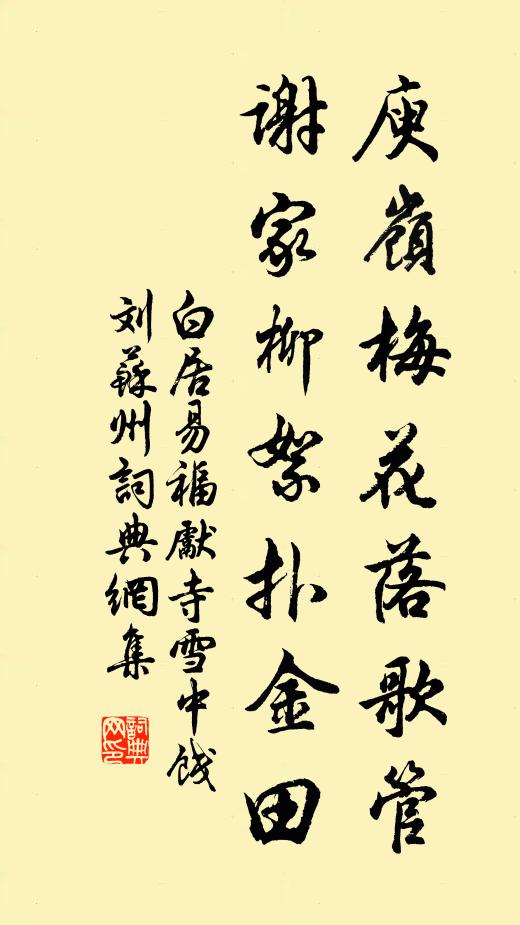 庾嶺梅花落歌管
謝家柳絮扑金田
白居易福獻寺雪中餞
刘蘇州詞典網集
詞典網印